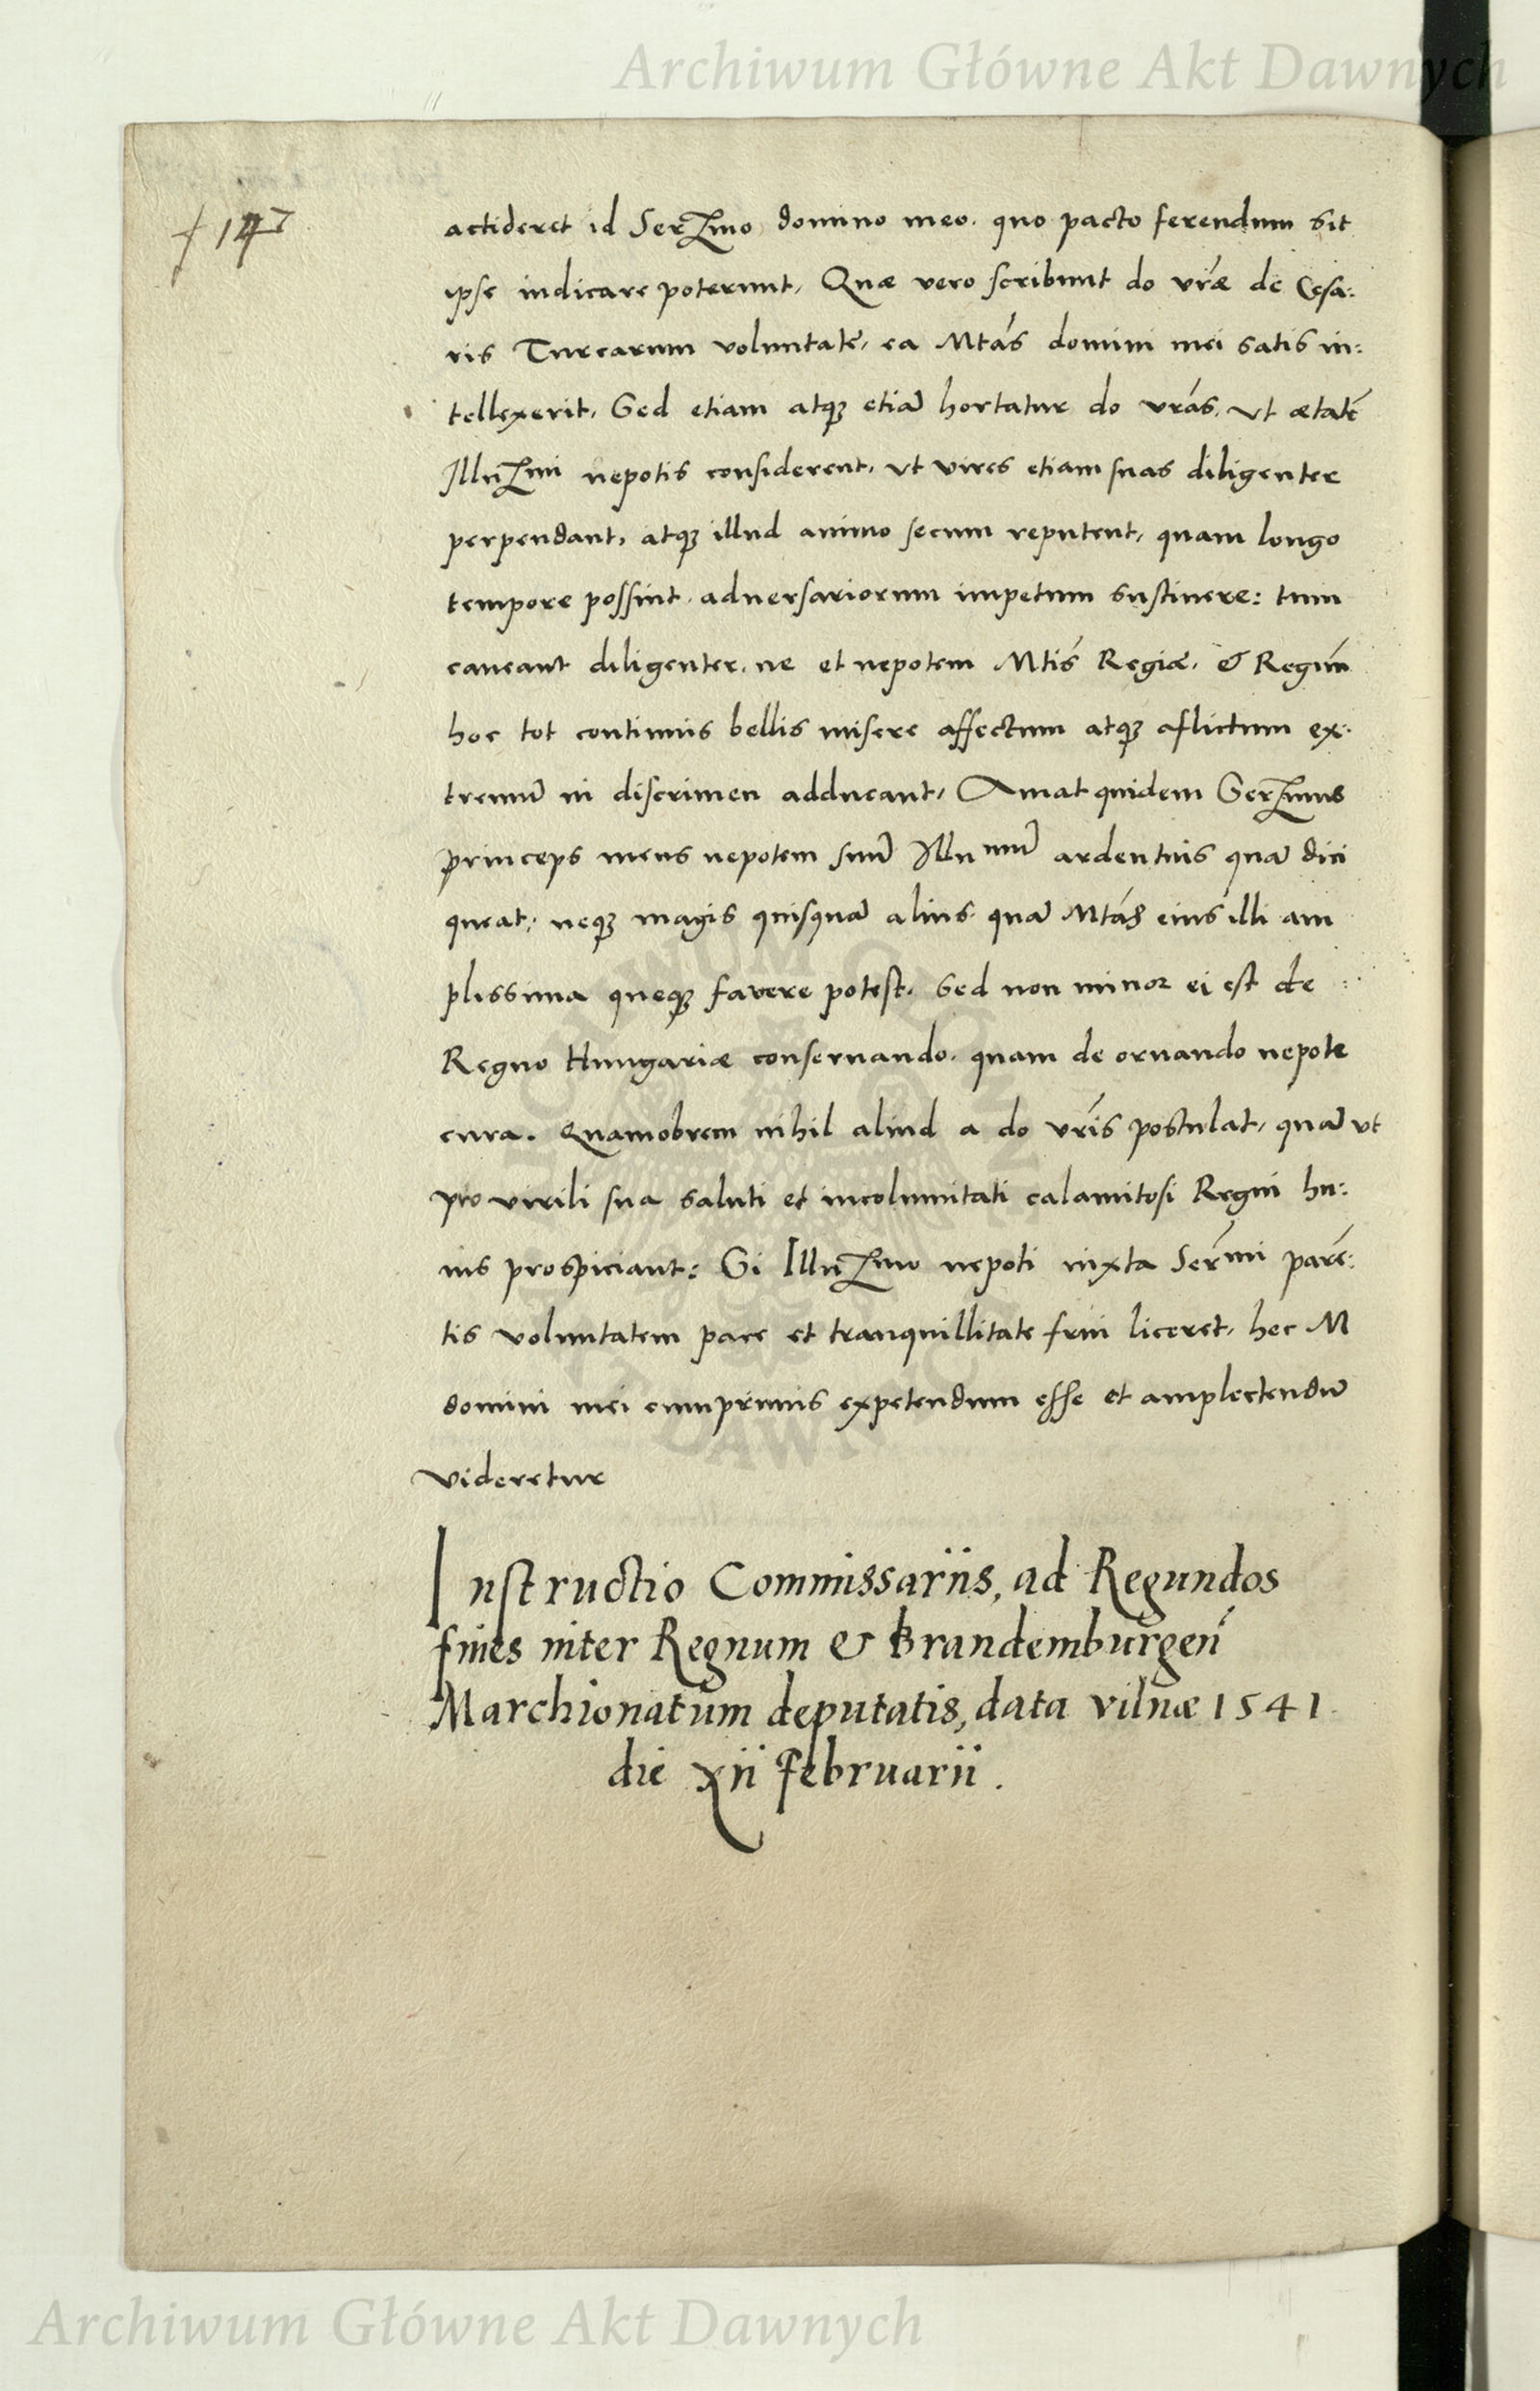 Archiwum Główne Akt Dawnych
147
accideret id Serzmo domino meo. quo pacto ferendum sit
ipse iudicare poterunt, Quæ vero scribunt do vræ de Cesa:
ris Turcarum voluntatē, ea Mtás domini mei satis in:
tellexerit, Sed etiam atqꝫ etiā hortatur do vrás, ut ætatē
Illuzmi nepotis considerent, ut vires etiam suas diligenter
perpendant, atqꝫ illud animo secum reputent, quam longo
tempore possint adversariorum impetum sustinere: tum
caveant diligenter, ne et nepotem Mtis Regiæ, & Regnū
hoc tot continuis bellis misere affectum atqꝫ aflictum ex:
tremū in discrimen adducant, Amat quidem Serzmus
princeps meus nepotem suū Illu mū ardentius quā dici
queat, neqꝫ magis quisquā alius quā Mtás eius illi am
plissima queqꝫ favere potest. Sed non minor ei est de
Regno Hungariæ conservando, quam de ornando nepote
cura. Quamobrem nihil aliud a do vrís postulat, quā ut
pro virili sua saluti et incolumitati calamitosi Regni hu:
ius prospiciant: Si Illuzmo nepoti iuxta Sermi parē:
tis voluntatem pace et tranquillitate frui liceret, hec M
domini mei cumprimis expetendum esse et amplectendū
videretur
Instructio Commissariis, ad Regundos
fines inter Regnum & Brandemburgeñ
Marchionatum deputatis, data Vilnæ 1541
die xii februarii.
Archiwum Główne Akt Dawnych